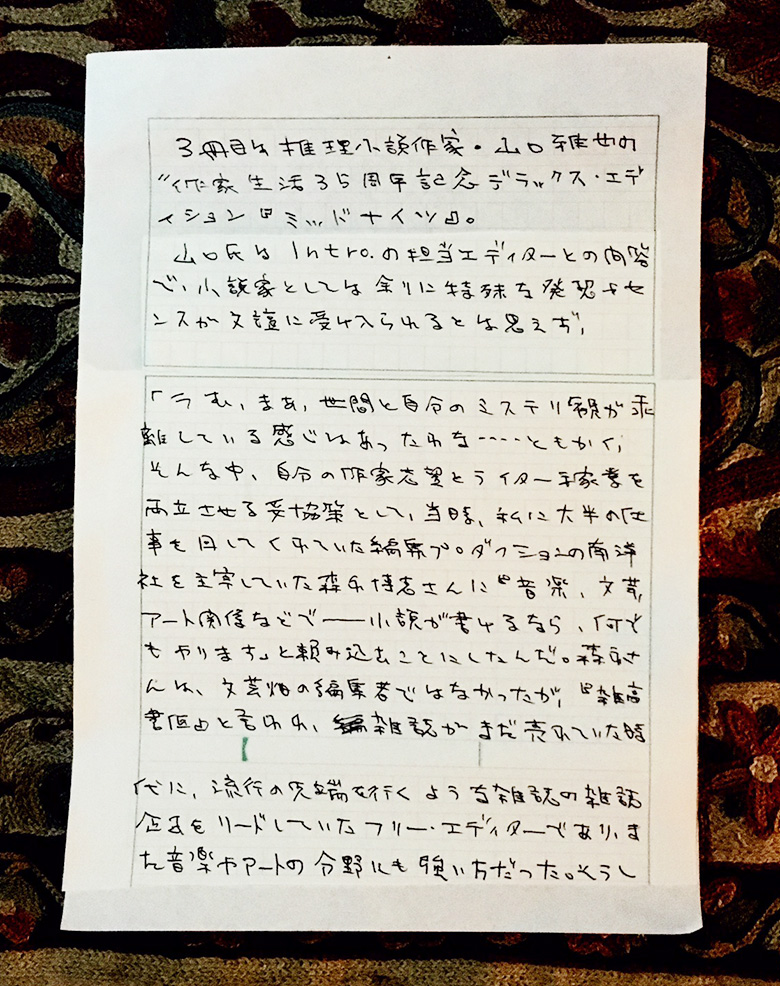 3冊目は推理小説作家・山口雅也の
"作家生活35周年記念デラックス・エデ
ィション『ミッドナイツ』。
山口氏は Intro.の担当エディターとの問答
で、小説家としては余りに特殊な発想やセ
ンスが文壇に受け入られるとは思えず、
「うむ、まあ、世間と自分のミステリ観が乖
離している感じはあったわな‥‥ともかく、
そんな中、自分の作家志望とライター家業を
両立させる妥協策として、当時、私に大半の仕
事を回してくれていた編集プロダクションの南洋
社を主宰していた森永博志さんに『音楽、文芸、
アート関係などで――小説が書けるなら、何で
もやります』と頼み込むことにしたんだ。森永さ
んは、文芸畑の編集者ではなかったが、『雑高
書低』と言われ、雑誌がまだ売れていた時
代に、流行の先端を行くような雑誌の雑誌
企画をリードしていたフリー・エディターであり、ま
た音楽やアートの分野にも強い方だった。そうし